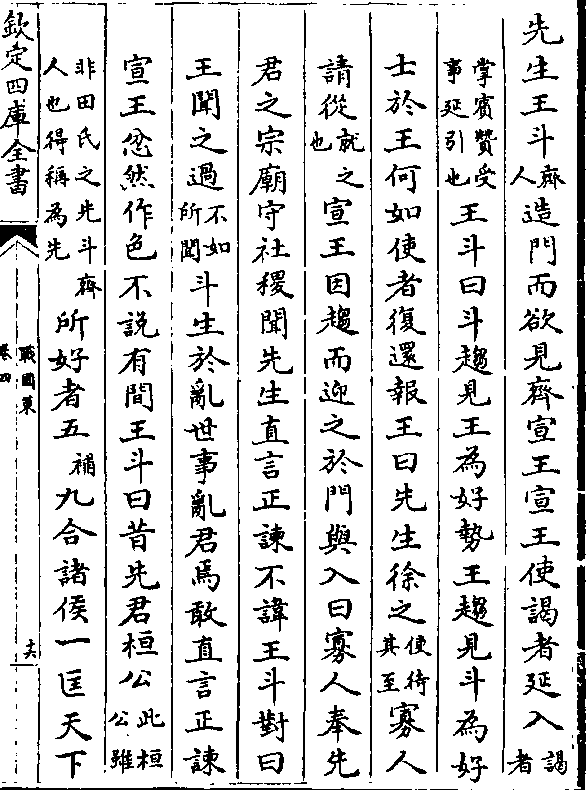 先生王斗齊人造門而欲見齊宣王宣王使謁者延入謁者
掌賓贊受事延引也王斗曰斗趨見王為好勢王趨見斗為好
士於王何如使者復還報王曰先生徐之使待其至寡人
請從就之也宣王因趨而迎之於門與入曰寡人奉先
君之宗廟守社稷聞先生直言正諫不諱王斗對曰
王聞之過不如所聞斗生於亂世事亂君焉敢直言正諫
宣王忿然作色不說有間王斗曰昔先君桓公此桓公雖
非田氏之先斗齊人也得稱為先所好者五補九合諸侯一匡天下
欽定四庫全書
戰國策
卷四
十六